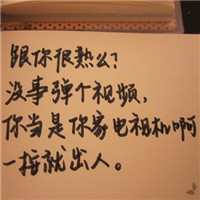 跟你很熟么？
没事弹个视频，
你当是你家电视机啊
一按就出人。